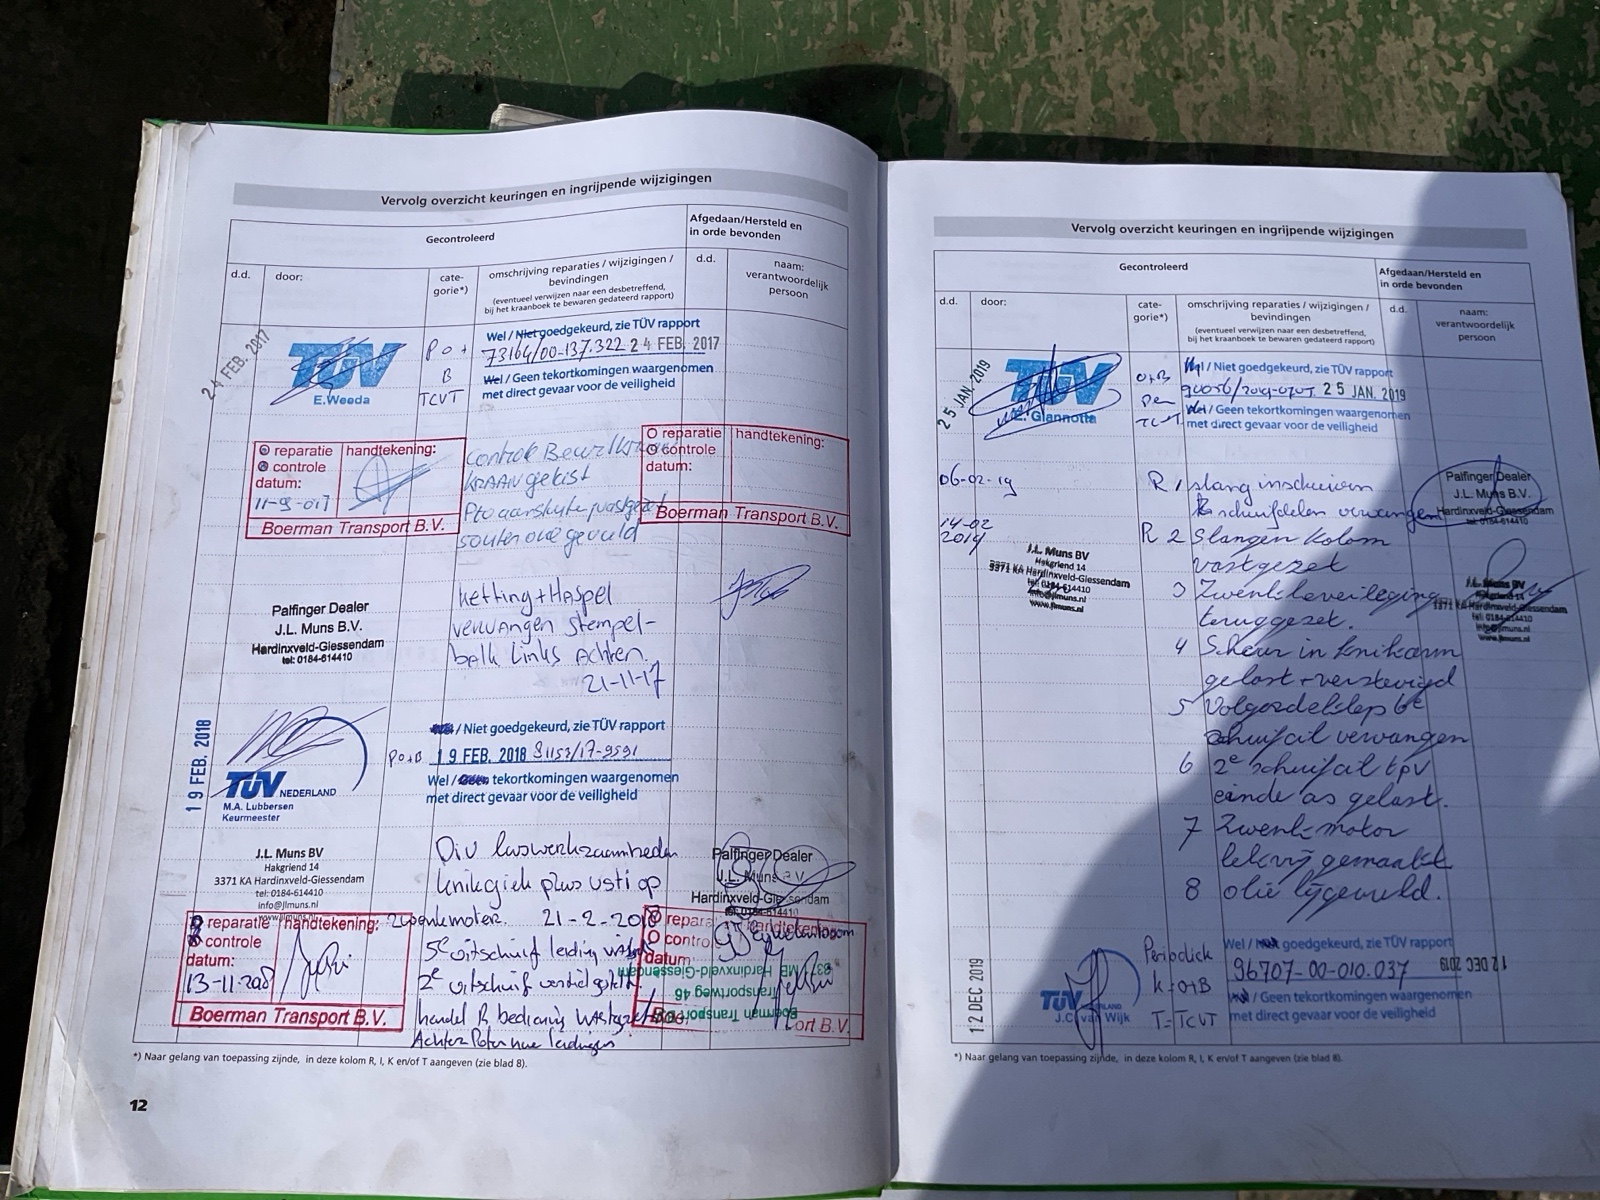 Vervolg overzicht keuringen en ingrijpende wijzigingen
Gecontroleerd
Afgedaan/Hersteld en
in orde bevonden
d.d.
door:
cate-
gorie*)
omschrijving reparaties / wijzigingen /
bevindingen
(eventueel verwijzen naar een desbetreffend,
bij het kraanboek te bewaren gedateerd rapport)
d.d.
naam:
verantwoordelijk
persoon
24 FEB. 2017
TÜV
E.Weeda
PO+
B
TCVT
Wel / Niet goedgekeurd, zie TÜV rapport
73164/00-137.322 24 FEB. 2017
Wel / Geen tekortkomingen waargenomen
met direct gevaar voor de veiligheid
reparatie
controle
datum:
11-9-017
handtekening:
Boerman Transport B.V.
controle
KRAAN
gevuld
reparatie
controle
datum:
handtekening:
Boerman Transport B.V.
Palfinger Dealer
J.L. Muns B.V.
Hardinxveld-Giessendam
tel: 0184-614410
ketting + Haspel
vervangen Stempel-
balk Links Achter.
21-11-17
19 FEB. 2018
TÜV NEDERLAND
M.A. Lubbersen
Keurmeester
PO+B
/ Niet goedgekeurd, zie TÜV rapport
19 FEB. 2018 81153/17-9591
Wel / Geen tekortkomingen waargenomen
met direct gevaar voor de veiligheid
J.L. Muns BV
Hakgriend 14
3371 KA Hardinxveld-Giessendam
tel: 0184-614410
info@jlmuns.nl
www.jlmuns.nl
Div laswerkzaamheden
knikgiek plus
zwenkmotor. 21-2-2018
Palfinger Dealer
J.L. Muns B.V.
Hardinxveld-Giessendam
tel: 0184-614410
reparatie
controle
datum:
13-11-2018
handtekening:
Boerman Transport B.V.
5e uitschuif leiding
2e uitschuif
handel R bediening
Achter nieuwe leidingen
reparatie
controle
datum
handtekening:
Boerman Transport
Transportweg 46
Hardinxveld-Giessendam
ort B.V.
*) Naar gelang van toepassing zijnde, in deze kolom R, I, K en/of T aangeven (zie blad 8).
12
Vervolg overzicht keuringen en ingrijpende wijzigingen
Gecontroleerd
Afgedaan/Hersteld en
in orde bevonden
d.d.
door:
cate-
gorie*)
omschrijving reparaties / wijzigingen /
bevindingen
(eventueel verwijzen naar een desbetreffend,
bij het kraanboek te bewaren gedateerd rapport)
d.d.
naam:
verantwoordelijk
persoon
25 JAN. 2019
TÜV
E. Giannotta
O+B
Per
TCVT
Wel / Niet goedgekeurd, zie TÜV rapport
25 JAN. 2019
Wel / Geen tekortkomingen waargenomen
met direct gevaar voor de veiligheid
06-02-19
R 1 slang inschuiven
schuifdelen vervangen
Palfinger Dealer
J.L. Muns B.V.
Hardinxveld-Giessendam
tel: 0184-614410
14-02
2019
J.L. Muns BV
Hakgriend 14
3371 KA Hardinxveld-Giessendam
tel: 0184-614410
info@jlmuns.nl
www.jlmuns.nl
R 2 Slangen kolom
vastgezet
3 Zwenkbeveiliging
teruggezet.
J.L. Muns BV
Hakgriend 14
3371 KA Hardinxveld-Giessendam
tel: 0184-614410
info@jlmuns.nl
www.jlmuns.nl
4 Scheur in knikarm
gelast + verstevigd
5 Volgordeklep 6e
schuifcil vervangen
6 2e schuifcil tpv
einde as gelast.
7 Zwenkmotor
lekvrij gemaakt
8 olie bijgevuld.
12 DEC 2019
TÜV NEDERLAND
J.C. van Wijk
Periodiek
K=O+B
T=TCVT
Wel / Niet goedgekeurd, zie TÜV rapport
96707-00-010.037 12 DEC 2019
Wel / Geen tekortkomingen waargenomen
met direct gevaar voor de veiligheid
*) Naar gelang van toepassing zijnde, in deze kolom R, I, K en/of T aangeven (zie blad 8).